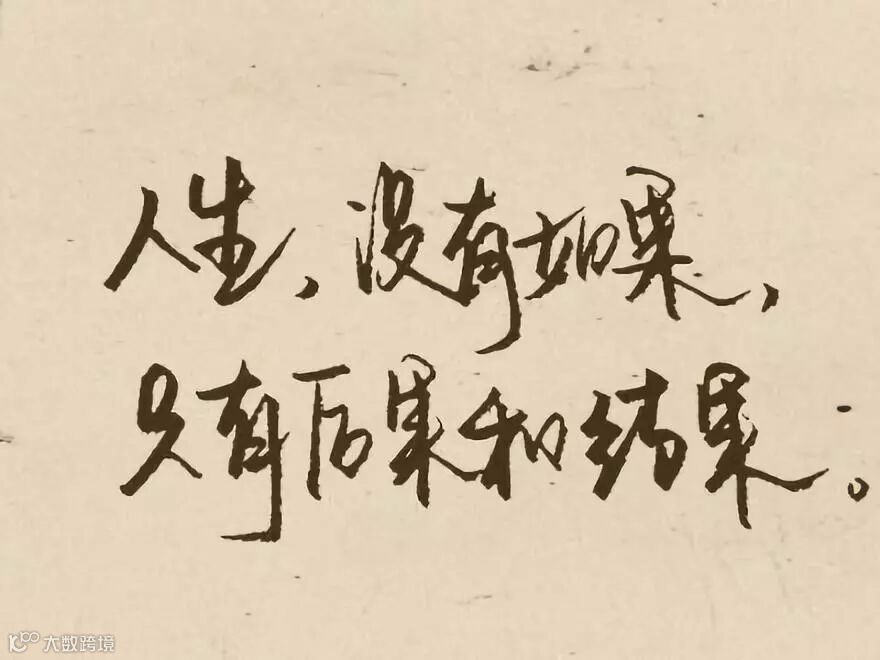 人生，没有如果，
只有后果和结果。
大数跨境